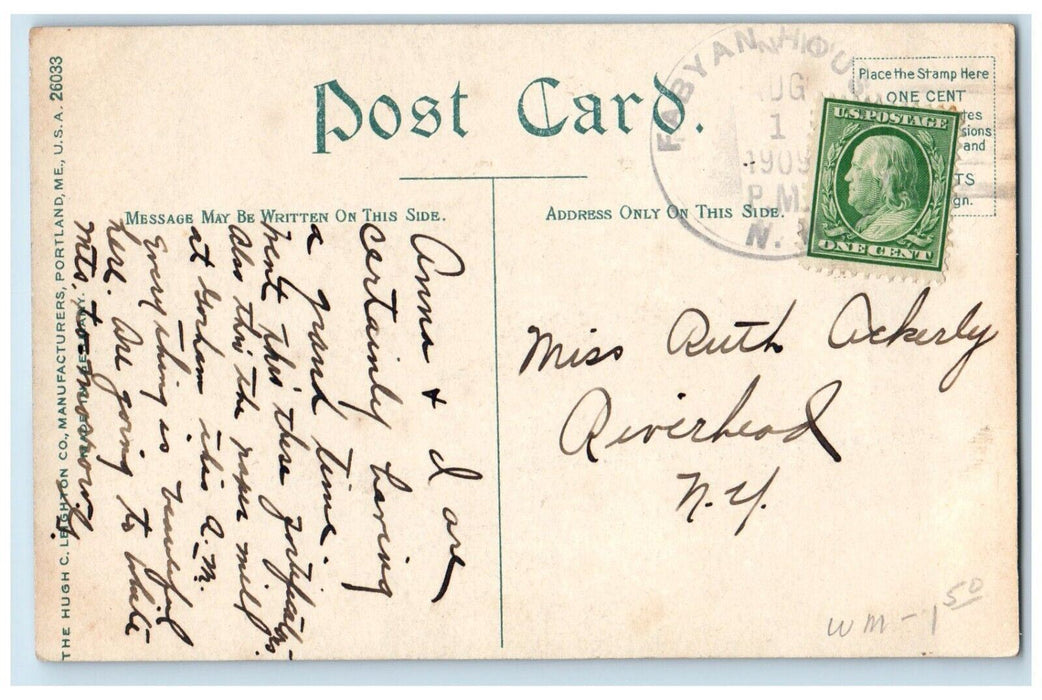 Post Card.
MESSAGE MAY BE WRITTEN ON THIS SIDE.
ADDRESS ONLY ON THIS SIDE.
Place the Stamp Here
ONE CENT
and
FABYAN HOUS
AUG
1
1909
P.M.
N.
U.S. POSTAGE
ONE CENT
Anna + I are
certainly having
a grand time.
Went thro' these
Also this the paper mill
at Gorham this A.M.
Everything is beautiful
here. Are going to White
Mts. to-morrow.
Miss Ruth Ackerly
Riverhead
N.Y.
WM - 1 50
THE HUGH C. LEIGHTON CO., MANUFACTURERS, PORTLAND, ME., U.S.A. 26033